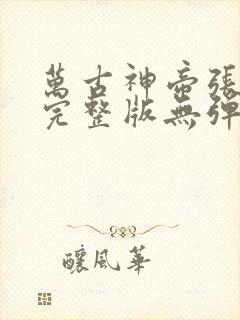 萬古神帝張
完整版無彈
釀風華